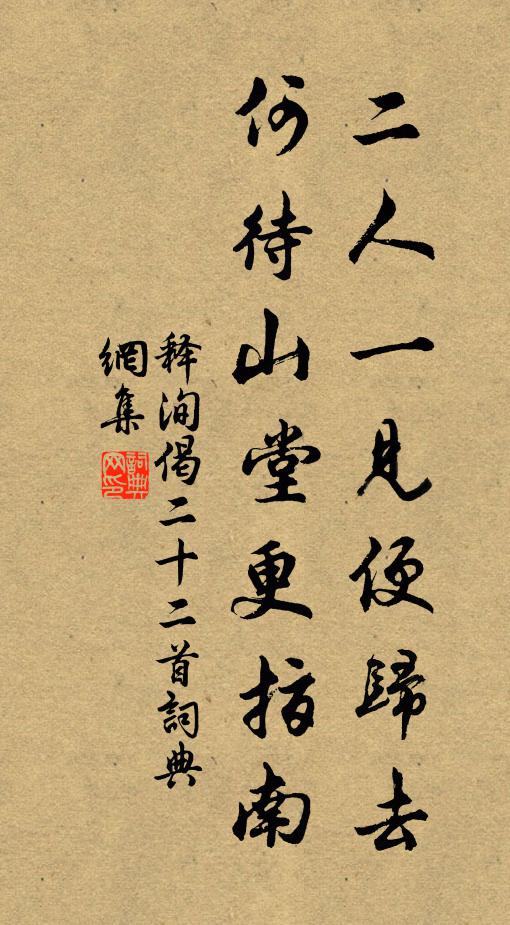 二人一見便歸去
何待山堂更指南
释洵偈二十二首詞典
網集
詞典
网印